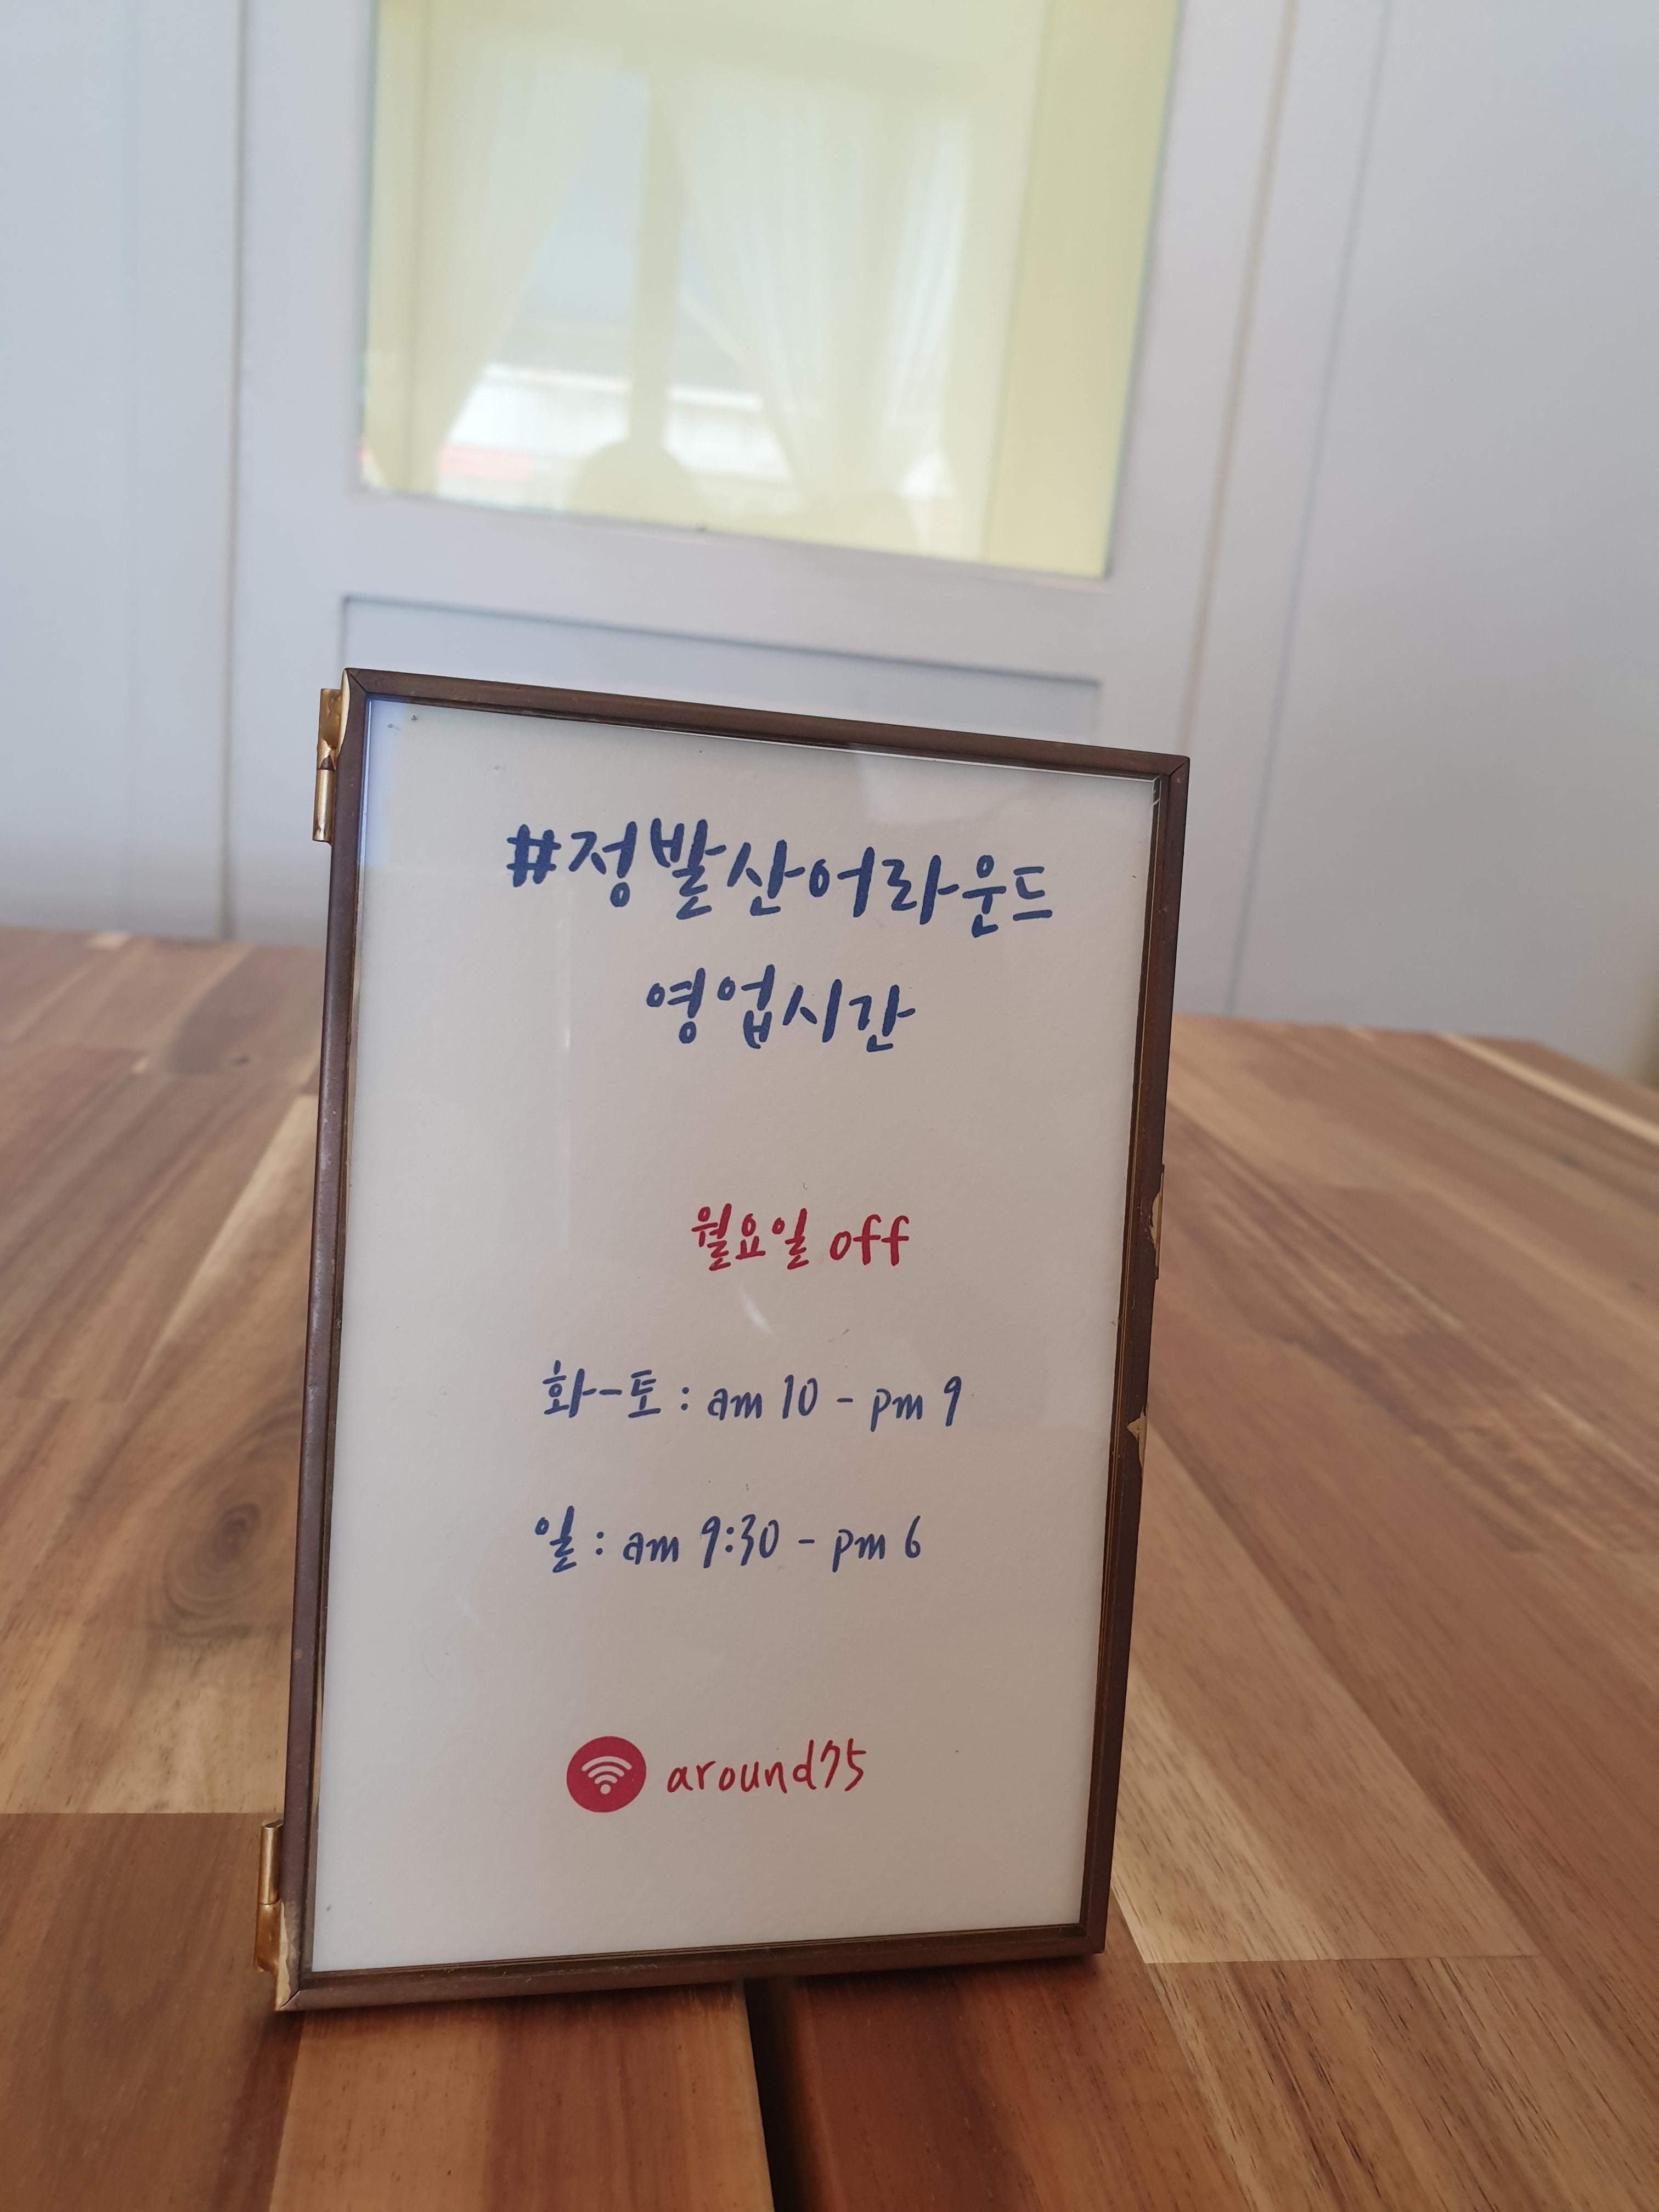 #정발산어라운드
영업시간
월요일 off
화-토 : am 10 - pm 9
일 : am 9:30 - pm 6
around75